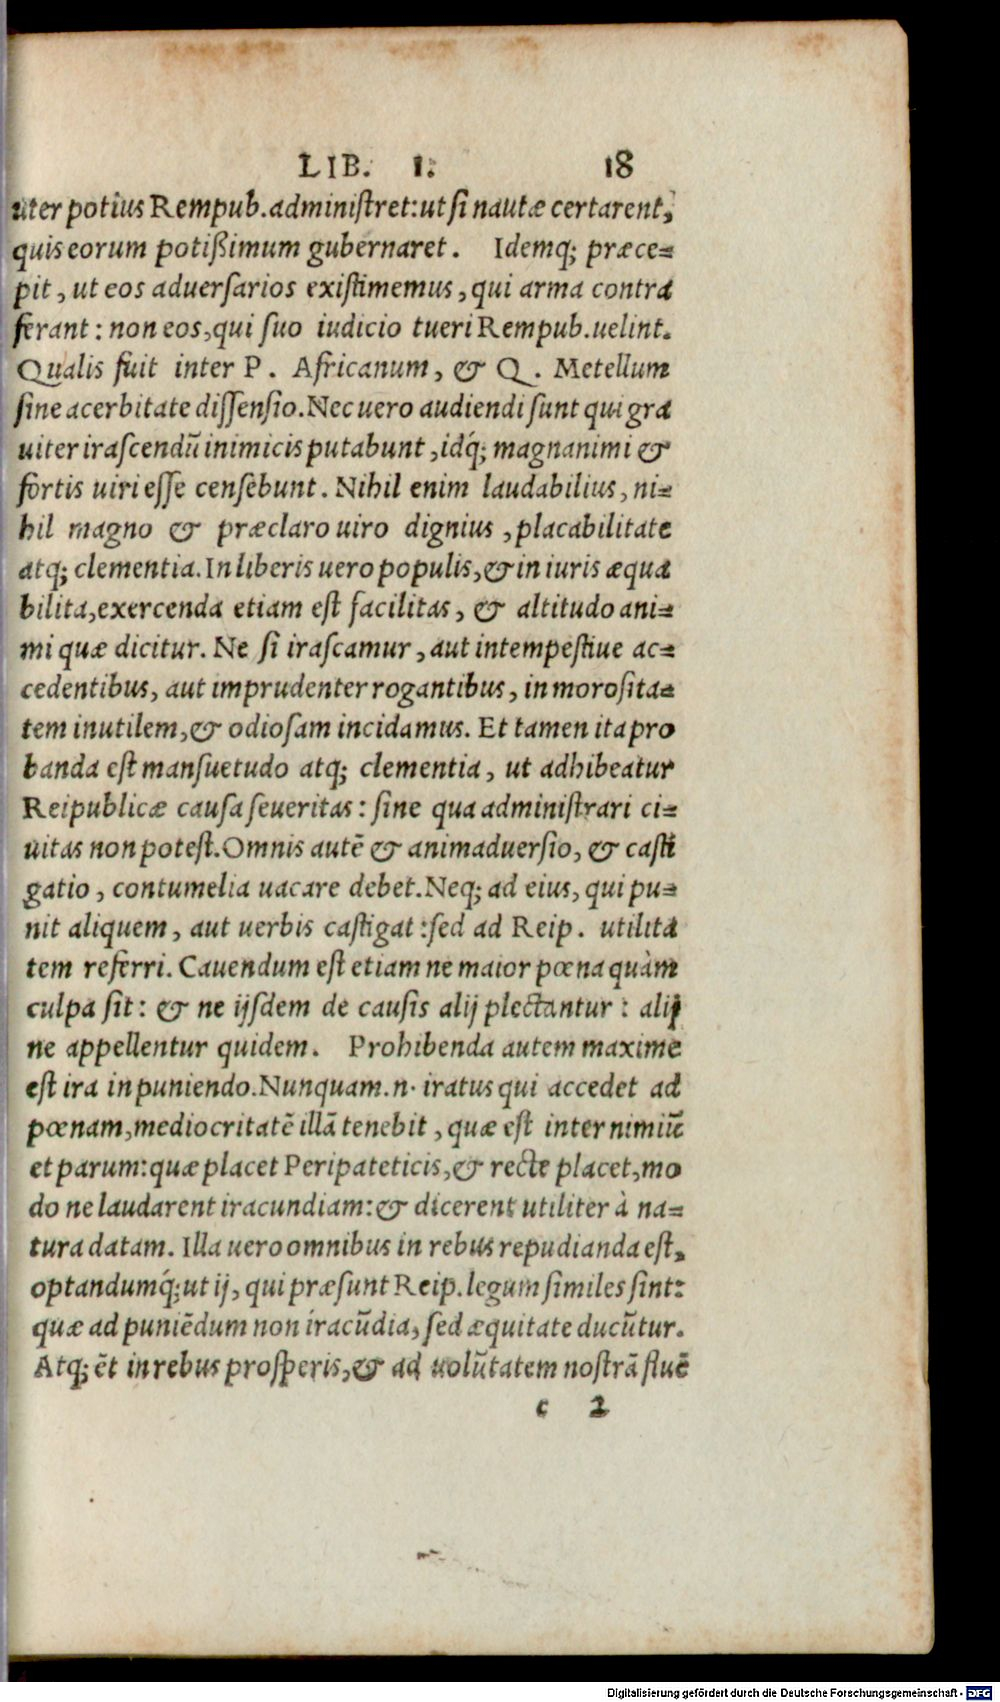 LIB. I. 18
uter potius Rempub. administret: ut si nautæ certarent,
quis eorum potißimum gubernaret. Idemq; præce-
pit, ut eos aduersarios existimemus, qui arma contra
ferant: non eos, qui suo iudicio tueri Rempub. uelint.
Qualis fuit inter P. Africanum, & Q. Metellum
sine acerbitate dissensio. Nec uero audiendi sunt qui gra
uiter irascendū inimicis putabunt, idq́; magnanimi &
fortis uiri esse censebunt. Nihil enim laudabilius, ni-
hil magno & præclaro uiro dignius, placabilitate
atq; clementia. In liberis uero populis, & in iuris æqua
bilita, exercenda etiam est facilitas, & altitudo ani-
mi quæ dicitur. Ne si irascamur, aut intempestiue ac-
cedentibus, aut imprudenter rogantibus, in morosita-
tem inutilem, & odiosam incidamus. Et tamen ita pro
banda est mansuetudo atq; clementia, ut adhibeatur
Reipublicæ causa seueritas: sine qua administrari ci-
uitas non potest. Omnis autē & animaduersio, & casti
gatio, contumelia uacare debet. Neq; ad eius, qui pu-
nit aliquem, aut uerbis castigat: sed ad Reip. utilita
tem referri. Cauendum est etiam ne maior pœna quàm
culpa sit: & ne ijsdem de causis alij plectantur: alij
ne appellentur quidem. Prohibenda autem maxime
est ira in puniendo. Nunquam .n. iratus qui accedet ad
pœnam, mediocritatē illā tenebit, quæ est inter nimiū
et parum: quæ placet Peripateticis, & recte placet, mo
do ne laudarent iracundiam: & dicerent utiliter à na-
tura datam. Illa uero omnibus in rebus repudianda est,
optandumq́; ut ij, qui præsunt Reip. legum similes sint:
quæ ad puniēdum non iracūdia, sed æquitate ducūtur.
Atq; ēt in rebus prosperis, & ad uolūtatem nostrā fluē
c 2
Digitalisierung gefördert durch die Deutsche Forschungsgemeinschaft - DFG